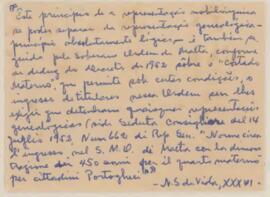 "Este princípio de a representação nobiliárquica
se poder separar da representação genealógica -
princípio absolutamente lógico, é também se-
guido pela Soberana Ordem de Malta, conforme
se deduz do decreto de 1952 sôbre "Costado
Materno", que permite sob certas condições, o
ingresso de titulares nessa Ordem sem lhes
exigir que detenham quaisquer representações
genealógicas (vide Seduta Consigliare del 14
luglio 1952 Num 662 di Rep. Gen. "Norme circa
l'ingresso nel S.M.O. di Malta con la dimos-
trazione dei 450 anni per il quarto materno
per cittadini Portoghesi")"
- N. S. de Vida, XXXVI -